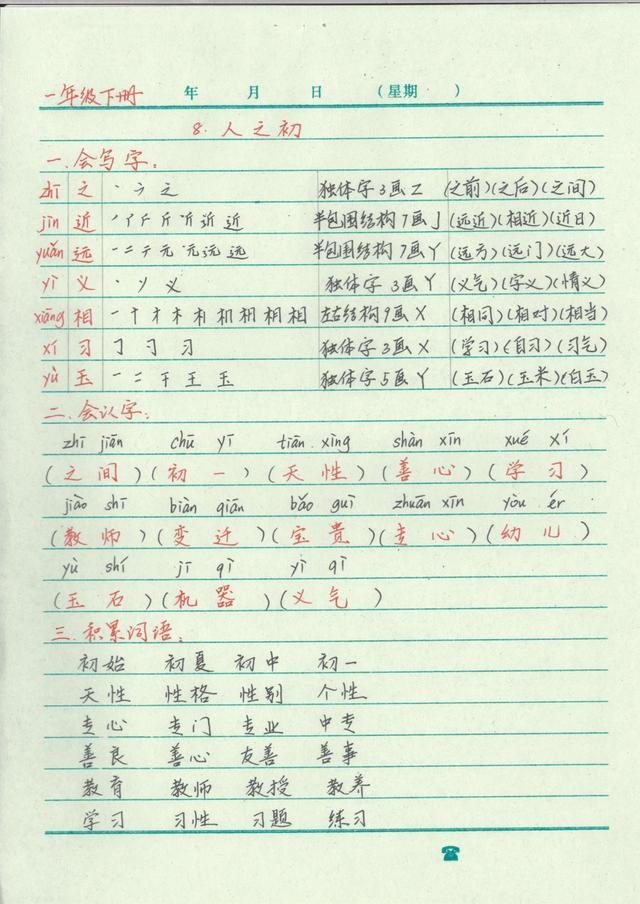 一年级下册 年 月 日 (星期 )
8.人之初
一.会写字:
zhī 之 丶 ㇇ 之 独体字3画Z (之前)(之后)(之间)
jìn 近 近 半包围结构7画J (远近)(相近)(近日)
yuǎn 远 一 二 テ 元 远 半包围结构7画Y (远方)(远门)(远大)
yì 义 丶 义 独体字3画Y (义气)(字义)(情义)
xiāng 相 一 十 才 木 相 相 左右结构9画X (相同)(相对)(相当)
xí 习 习 独体字3画X (学习)(自习)(习气)
yù 玉 一 二 干 王 玉 独体字5画Y (玉石)(玉米)(白玉)
二.会认字:
zhī jiān chū yī tiān xìng shàn xīn xué xí
(之间)(初一)(天性)(善心)(学习)
jiào shī biàn qiān bǎo guì zhuān xīn yòu ér
(教师)(变迁)(宝贵)(专心)(幼儿)
yù shí jī qì yì qì
(玉石)(机器)(义气)
三.积累词语:
初始 初夏 初中 初一
天性 性格 性别 个性
专心 专门 专业 中专
善良 善心 友善 善事
教育 教师 教授 教养
学习 习性 习题 练习